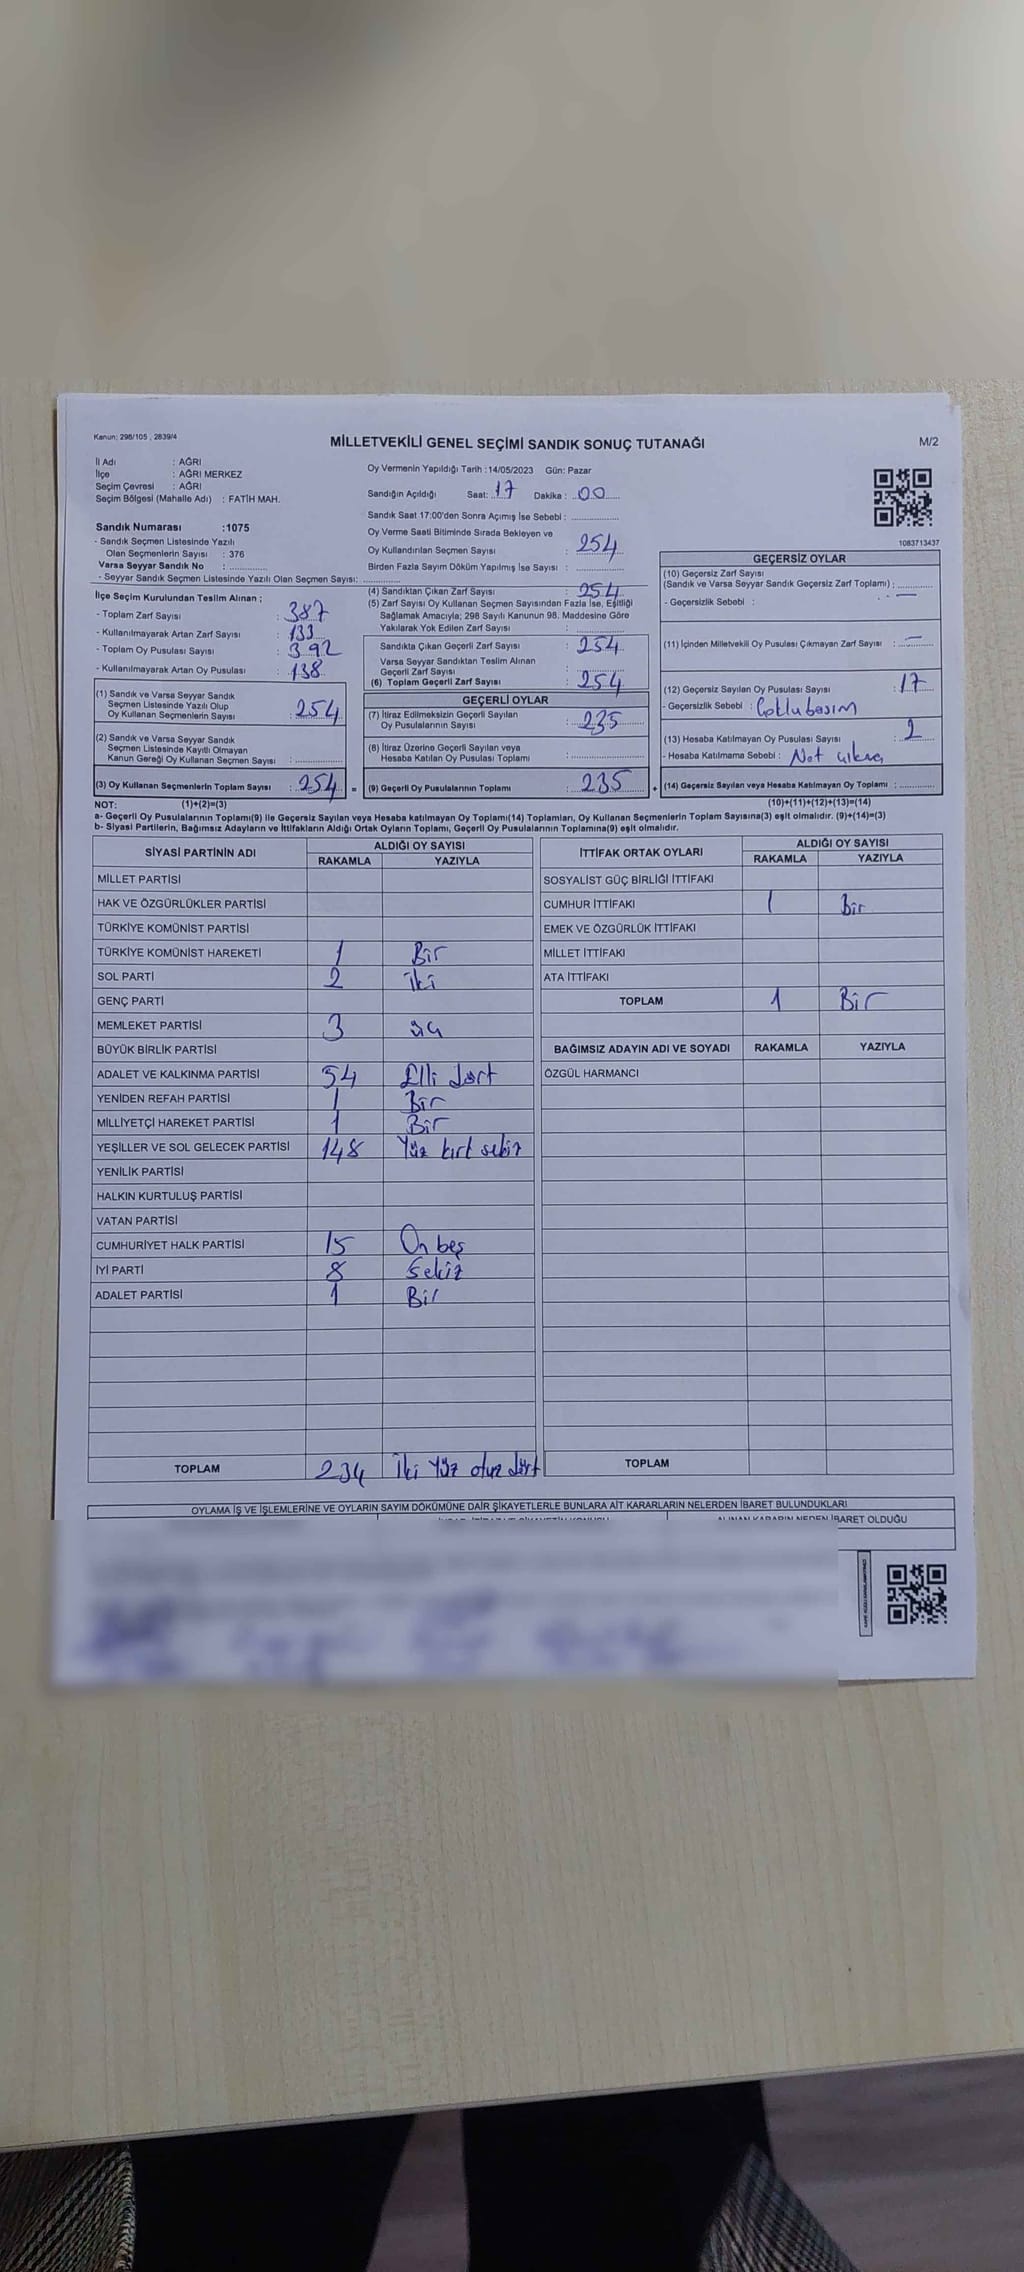 Kanun: 298/105 , 2839/4
MİLLETVEKİLİ GENEL SEÇİMİ SANDIK SONUÇ TUTANAĞI
M/2
İl Adı : AĞRI
İlçe : AĞRI MERKEZ
Seçim Çevresi : AĞRI
Seçim Bölgesi (Mahalle Adı) : FATİH MAH.
Sandık Numarası :1075
- Sandık Seçmen Listesinde Yazılı
Olan Seçmenlerin Sayısı : 376
Varsa Seyyar Sandık No : ....................
- Seyyar Sandık Seçmen Listesinde Yazılı Olan Seçmen Sayısı: ..............
Oy Vermenin Yapıldığı Tarih :14/05/2023 Gün: Pazar
Sandığın Açıldığı Saat: 17 Dakika : 00
Sandık Saat 17:00'den Sonra Açımış İse Sebebi : ................
Oy Verme Saati Bitiminde Sırada Bekleyen ve
Oy Kullandırılan Seçmen Sayısı : 254
Birden Fazla Sayım Döküm Yapılmış İse Sayısı : ................
1083713437
İlçe Seçim Kurulundan Teslim Alınan ;
- Toplam Zarf Sayısı : 387
- Kullanılmayarak Artan Zarf Sayısı : 133
- Toplam Oy Pusulası Sayısı : 392
- Kullanılmayarak Artan Oy Pusulası : 138
(1) Sandık ve Varsa Seyyar Sandık
Seçmen Listesinde Yazılı Olup
Oy Kullanan Seçmenlerin Sayısı : 254
(2) Sandık ve Varsa Seyyar Sandık
Seçmen Listesinde Kayıtlı Olmayan
Kanun Gereği Oy Kullanan Seçmen Sayısı : ................
(3) Oy Kullanan Seçmenlerin Toplam Sayısı : 254 =
(4) Sandıktan Çıkan Zarf Sayısı : 254
(5) Zarf Sayısı Oy Kullanan Seçmen Sayısından Fazla İse, Eşitliği
Sağlamak Amacıyla; 298 Sayılı Kanunun 98. Maddesine Göre
Yakılarak Yok Edilen Zarf Sayısı : ................
Sandıkta Çıkan Geçerli Zarf Sayısı : 254
Varsa Seyyar Sandıktan Teslim Alınan
Geçerli Zarf Sayısı : ................
(6) Toplam Geçerli Zarf Sayısı : 254
GEÇERLİ OYLAR
(7) İtiraz Edilmeksizin Geçerli Sayılan
Oy Pusulalarının Sayısı : 235
(8) İtiraz Üzerine Geçerli Sayılan veya
Hesaba Katılan Oy Pusulası Toplamı : ................
(9) Geçerli Oy Pusulalarının Toplamı : 235 +
GEÇERSİZ OYLAR
(10) Geçersiz Zarf Sayısı
(Sandık ve Varsa Seyyar Sandık Geçersiz Zarf Toplamı) : ............
- Geçersizlik Sebebi : —
(11) İçinden Milletvekili Oy Pusulası Çıkmayan Zarf Sayısı : —
(12) Geçersiz Sayılan Oy Pusulası Sayısı : 17
- Geçersizlik Sebebi : Çoklubasım
(13) Hesaba Katılmayan Oy Pusulası Sayısı : 2
- Hesaba Katılmama Sebebi : Not
(14) Geçersiz Sayılan veya Hesaba Katılmayan Oy Toplamı : ............
NOT: (1)+(2)=(3) (10)+(11)+(12)+(13)=(14)
a- Geçerli Oy Pusulalarının Toplamı(9) ile Geçersiz Sayılan veya Hesaba katılmayan Oy Toplamı(14) Toplamları, Oy Kullanan Seçmenlerin Toplam Sayısına(3) eşit olmalıdır. (9)+(14)=(3)
b- Siyasi Partilerin, Bağımsız Adayların ve İttifakların Aldığı Ortak Oyların Toplamı, Geçerli Oy Pusulalarının Toplamına(9) eşit olmalıdır.
SİYASİ PARTİNİN ADI ALDIĞI OY SAYISI
RAKAMLA YAZIYLA
MİLLET PARTİSİ
HAK VE ÖZGÜRLÜKLER PARTİSİ
TÜRKİYE KOMÜNİST PARTİSİ
TÜRKİYE KOMÜNİST HAREKETİ 1 Bir
SOL PARTİ 2 iki
GENÇ PARTİ
MEMLEKET PARTİSİ 3 üç
BÜYÜK BİRLİK PARTİSİ
ADALET VE KALKINMA PARTİSİ 54 Elli dört
YENİDEN REFAH PARTİSİ 1 Bir
MİLLİYETÇİ HAREKET PARTİSİ 1 Bir
YEŞİLLER VE SOL GELECEK PARTİSİ 148 Yüz kırk sekiz
YENİLİK PARTİSİ
HALKIN KURTULUŞ PARTİSİ
VATAN PARTİSİ
CUMHURİYET HALK PARTİSİ 15 On beş
İYİ PARTİ 8 Sekiz
ADALET PARTİSİ 1 Bir
TOPLAM 234 İki Yüz otuz dört
İTTİFAK ORTAK OYLARI ALDIĞI OY SAYISI
RAKAMLA YAZIYLA
SOSYALİST GÜÇ BİRLİĞİ İTTİFAKI
CUMHUR İTTİFAKI 1 Bir
EMEK VE ÖZGÜRLÜK İTTİFAKI
MİLLET İTTİFAKI
ATA İTTİFAKI
TOPLAM 1 Bir
BAĞIMSIZ ADAYIN ADI VE SOYADI RAKAMLA YAZIYLA
ÖZGÜL HARMANCI
TOPLAM
OYLAMA İŞ VE İŞLEMLERİNE VE OYLARIN SAYIM DÖKÜMÜNE DAİR ŞİKAYETLERLE BUNLARA AİT KARARLARIN NELERDEN İBARET BULUNDUKLARI
ALINAN KARARIN NEDEN İBARET OLDUĞU